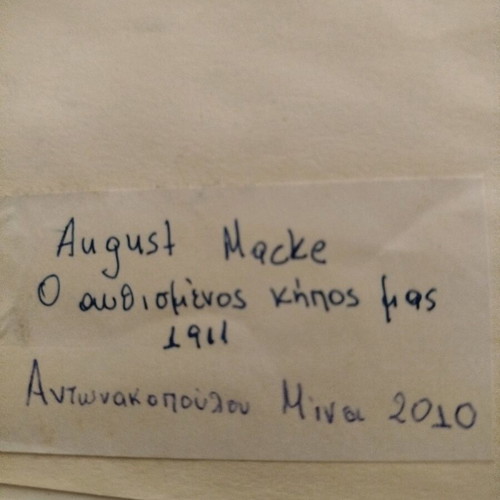 August Macke
Ο ανθισμένος κήπος μας
1911
Αντωνακοπούλου Μίνα 2010